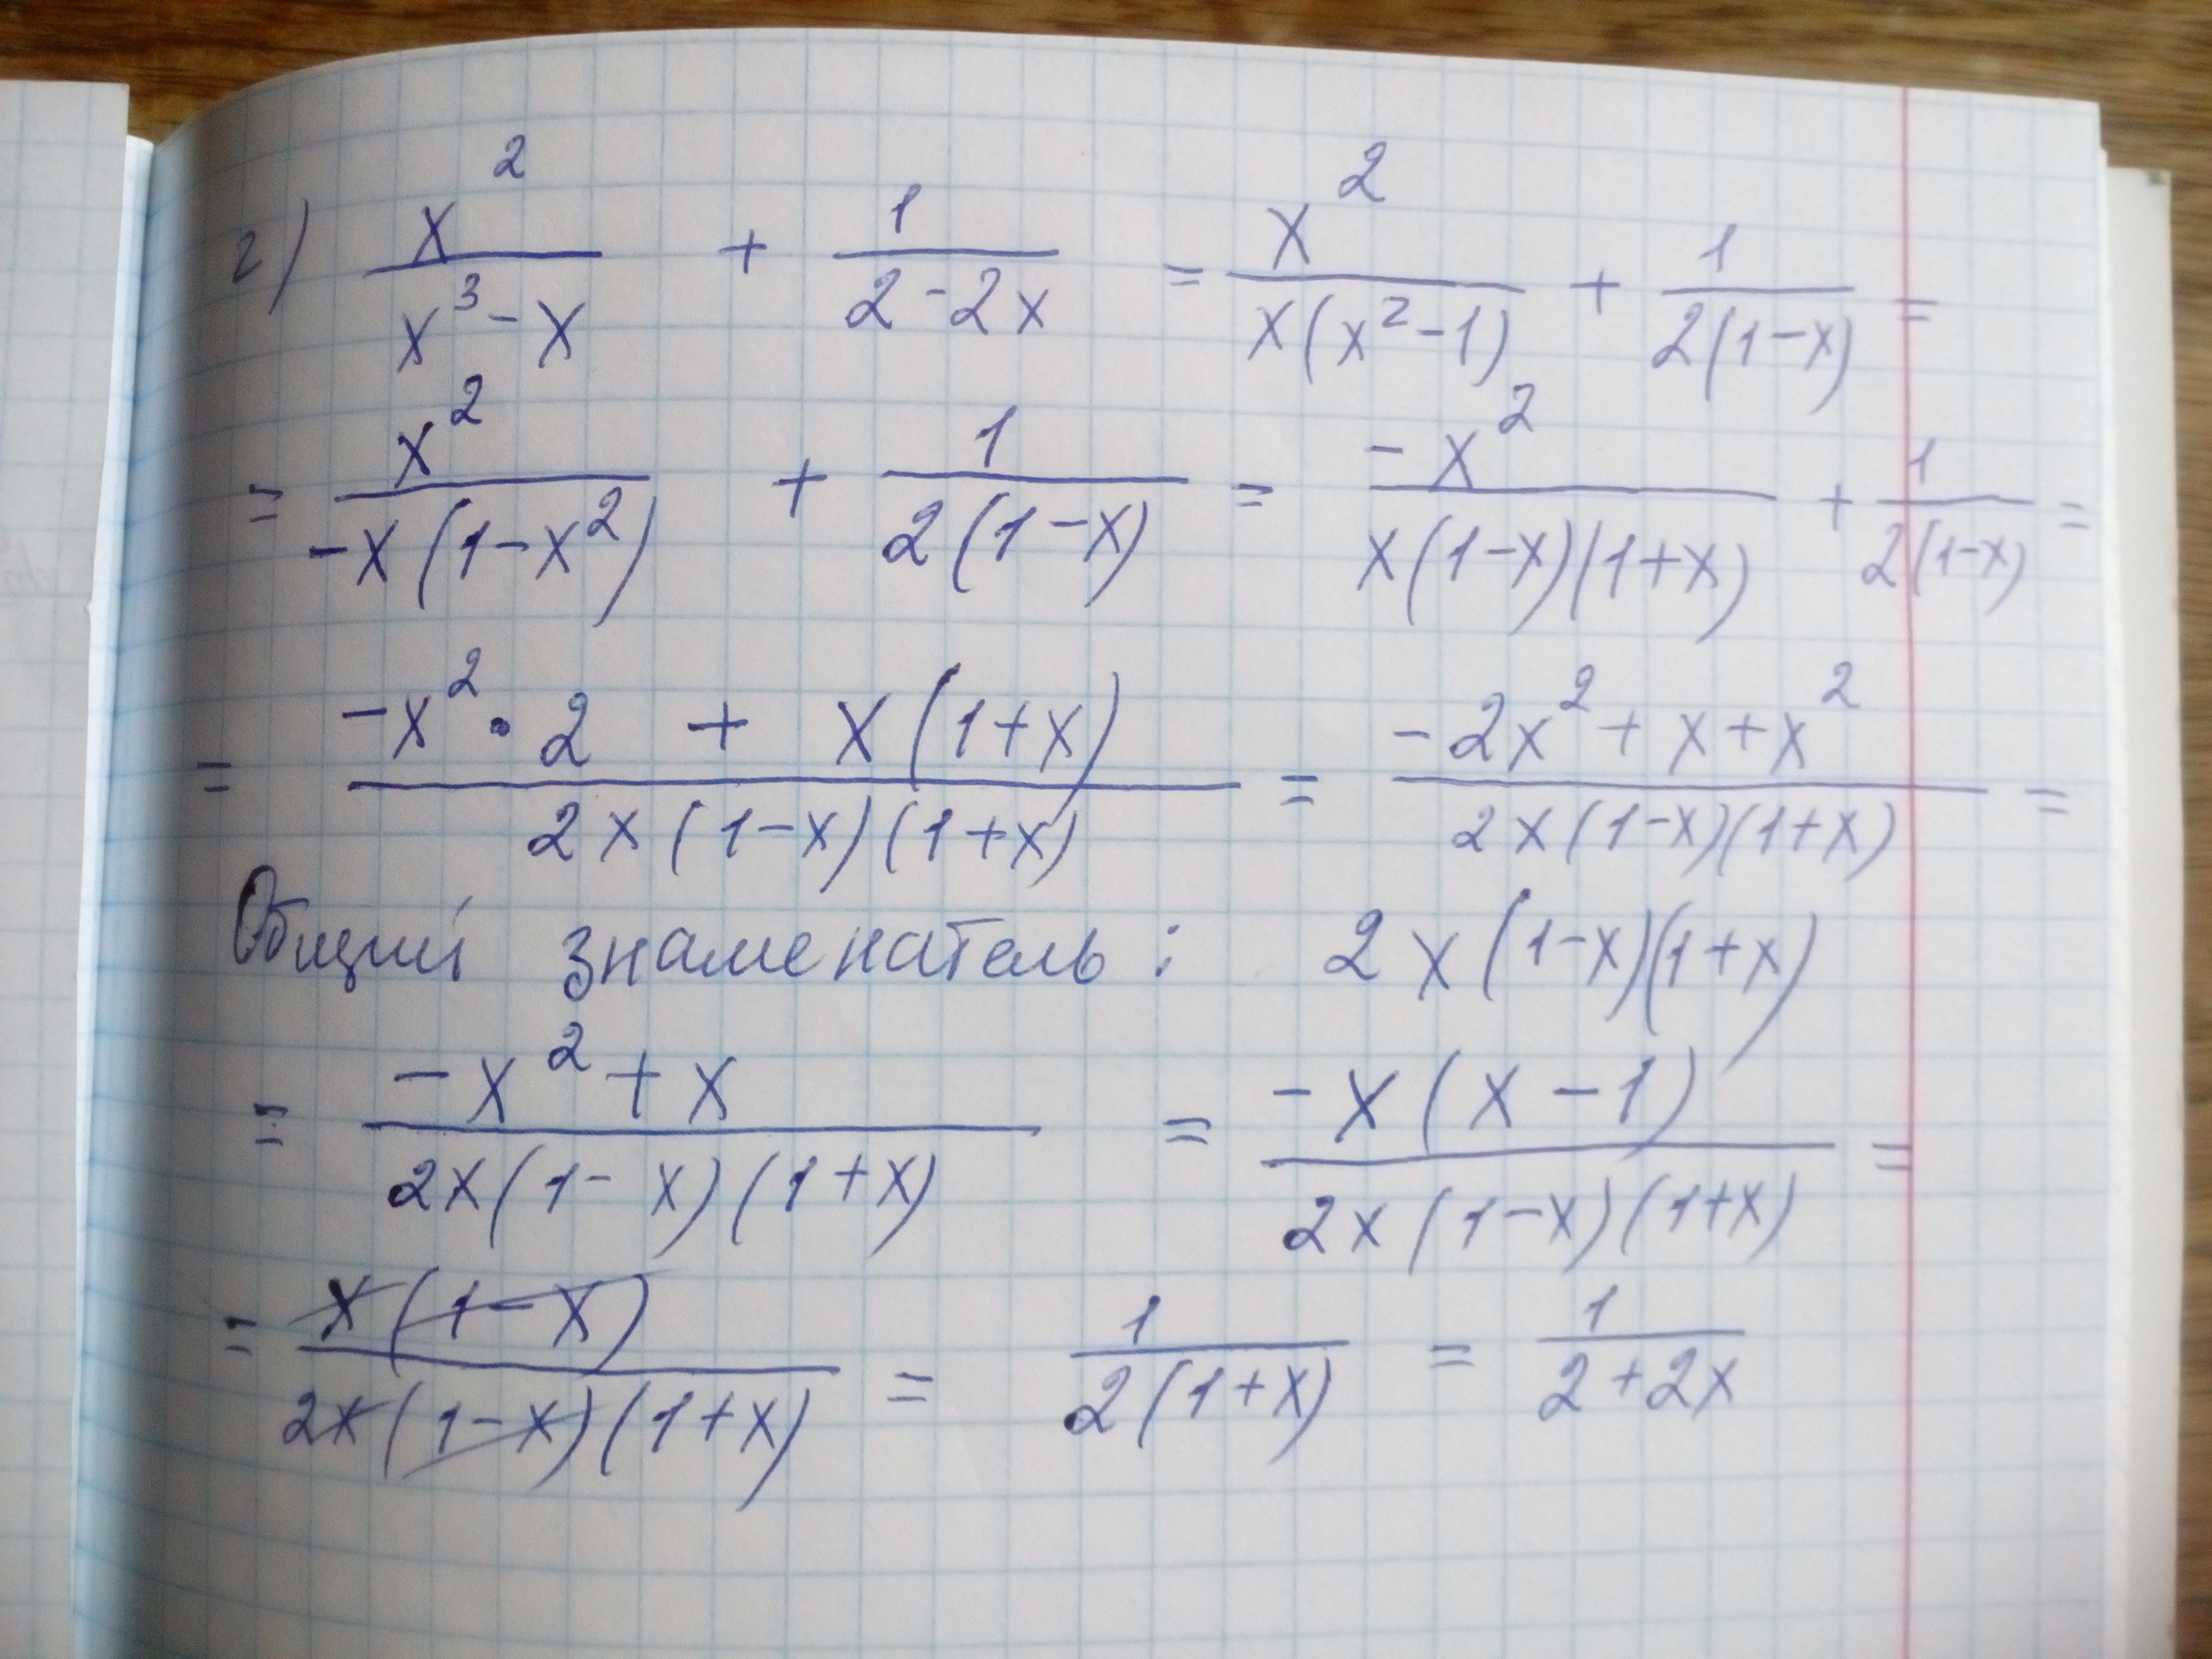 г) x²/(x³-x) + 1/(2-2x) = x²/(x(x²-1)) + 1/(2(1-x)) =
= x²/(-x(1-x²)) + 1/(2(1-x)) = -x²/(x(1-x)(1+x)) + 1/(2(1-x)) =
= (-x²·2 + x(1+x))/(2x(1-x)(1+x)) = (-2x²+x+x²)/(2x(1-x)(1+x)) =
Общий знаменатель: 2x(1-x)(1+x)
= (-x²+x)/(2x(1-x)(1+x)) = -x(x-1)/(2x(1-x)(1+x)) =
= x(1-x)/(2x(1-x)(1+x)) = 1/(2(1+x)) = 1/(2+2x)